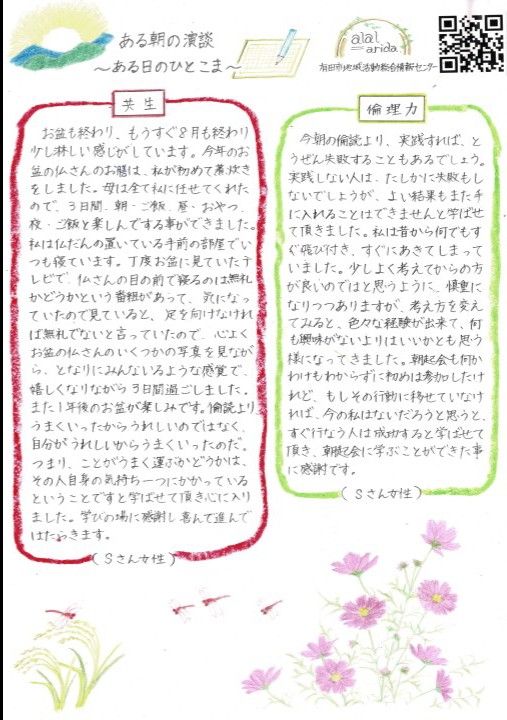 ある朝の演談
～ある日のひとこま～
alal
arida
有田市地域活動総合情報センター
共生
お盆も終わり、もうすぐ8月も終わり
少し淋しい感じがしています。今年のお
盆の仏さんのお膳は、私が初めて煮炊き
をしました。母は全て私に任せてくれた
ので、3日間、朝・ご飯、昼・おやつ、
夜・ご飯と楽しんでする事ができました。
私は仏だんの置いている手前の部屋でい
つも寝ています。丁度お盆に見ていたテ
レビで、仏さんの目の前で寝るのは無礼
かどうかという番組があって、気になっ
ていたので見ていると、足を向けなけれ
ば無礼でないと言っていたので、心よく
お盆の仏さんのいくつかの写真を見なが
ら、となりにみんないるような感覚で、
嬉しくなりながら3日間過ごしました。
また1年後のお盆が楽しみです。倫読より
うまくいったからうれしいのではなく、
自分がうれしいからうまくいったのだ。
つまり、ことがうまく運ぶかどうかは、
その人自身の気持ち一つにかかっている
ということですと学ばせて頂き心に入り
ました。学びの場に感謝し喜んで進んで
はたらきます。
（Sさん女性）
倫理力
今朝の倫読より、実践すれば、と
うぜん失敗することもあるでしょう。
実践しない人は、たしかに失敗もし
ないでしょうが、よい結果もまた手
に入れることはできませんと学ばせ
て頂きました。私は昔から何でもす
ぐ飛び付き、すぐにあきてしまって
いました。少しよく考えてからの方
が良いのではと思うように、慎重に
なりつつありますが、考え方を変え
てみると、色々な経験が出来て、何
も興味がないよりはいいかとも思う
様になってきました。朝起会も何か
わけもわからずに初めは参加したけ
れど、もしその行動に移せていなけ
れば、今の私はないだろうと思うと、
すぐ行なう人は成功すると学ばせて
頂き、朝起会に学ぶことができた事
に感謝です。
（Sさん女性）